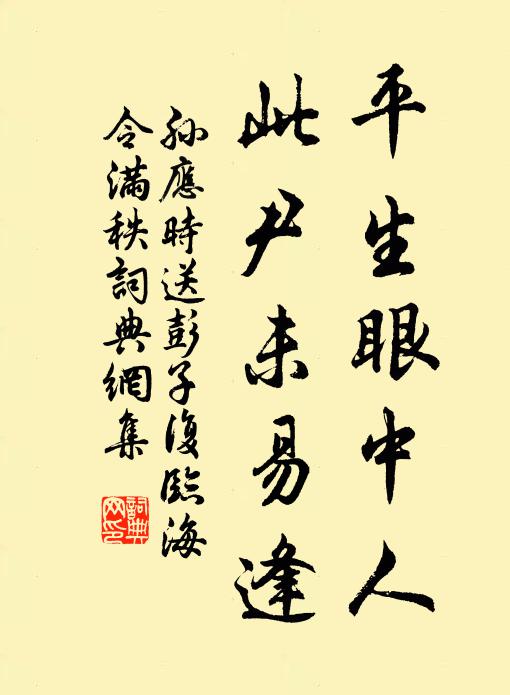 平生眼中人
此尹未易逢
孙應時送彭子復臨海
令满秩詞典網集
詞典网印